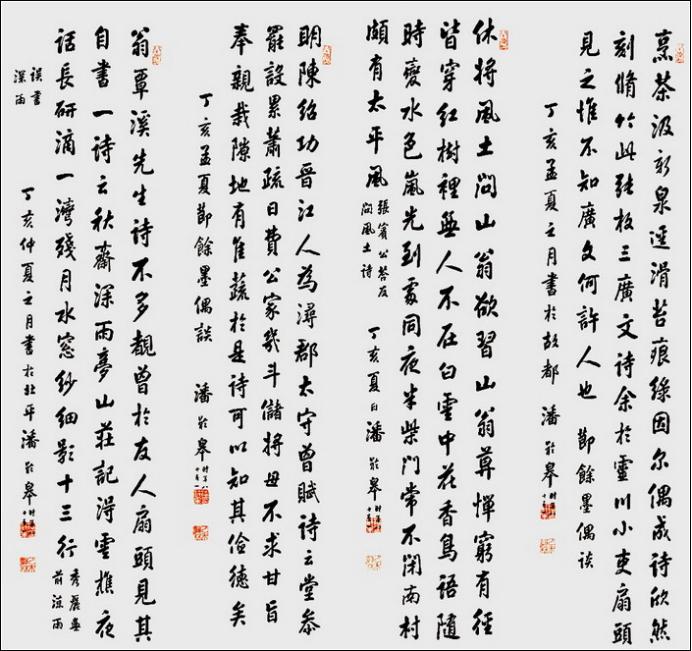 烹茶汲新泉逕滑苔痕綠因尔偶成詩欣然
刻脩竹此張枚三廣文詩余於靈川小吏扇頭
見之惟不知廣文何許人也 節餘墨偶談
丁亥孟夏之月書於故都 潘齡皋
休將風土問山翁欲習山翁莫憚窮有徑
皆穿紅樹裡無人不在白雲中花香鳥語隨
時變水色嵐光到處同夜半柴門常不閉南村
頗有太平風 張賓公答友
問風土詩
丁亥夏日潘齡皋
明陳紹功晉江人為潯郡太守曾賦詩云堂忝
罷設累蕭疏日費公家幾斗儲將母不求甘旨
奉親栽隙地有隹蔬於是詩可以知其儉德矣
丁亥孟夏節餘墨偶談 潘齡皋
翁覃溪先生詩不多覯曾於友人扇頭見其
自書一詩云秋齋深雨夢山莊記得雲樵夜
話長研滴一灣殘月水窓紗細影十三行
丁亥仲夏之月書於北平潘齡皋